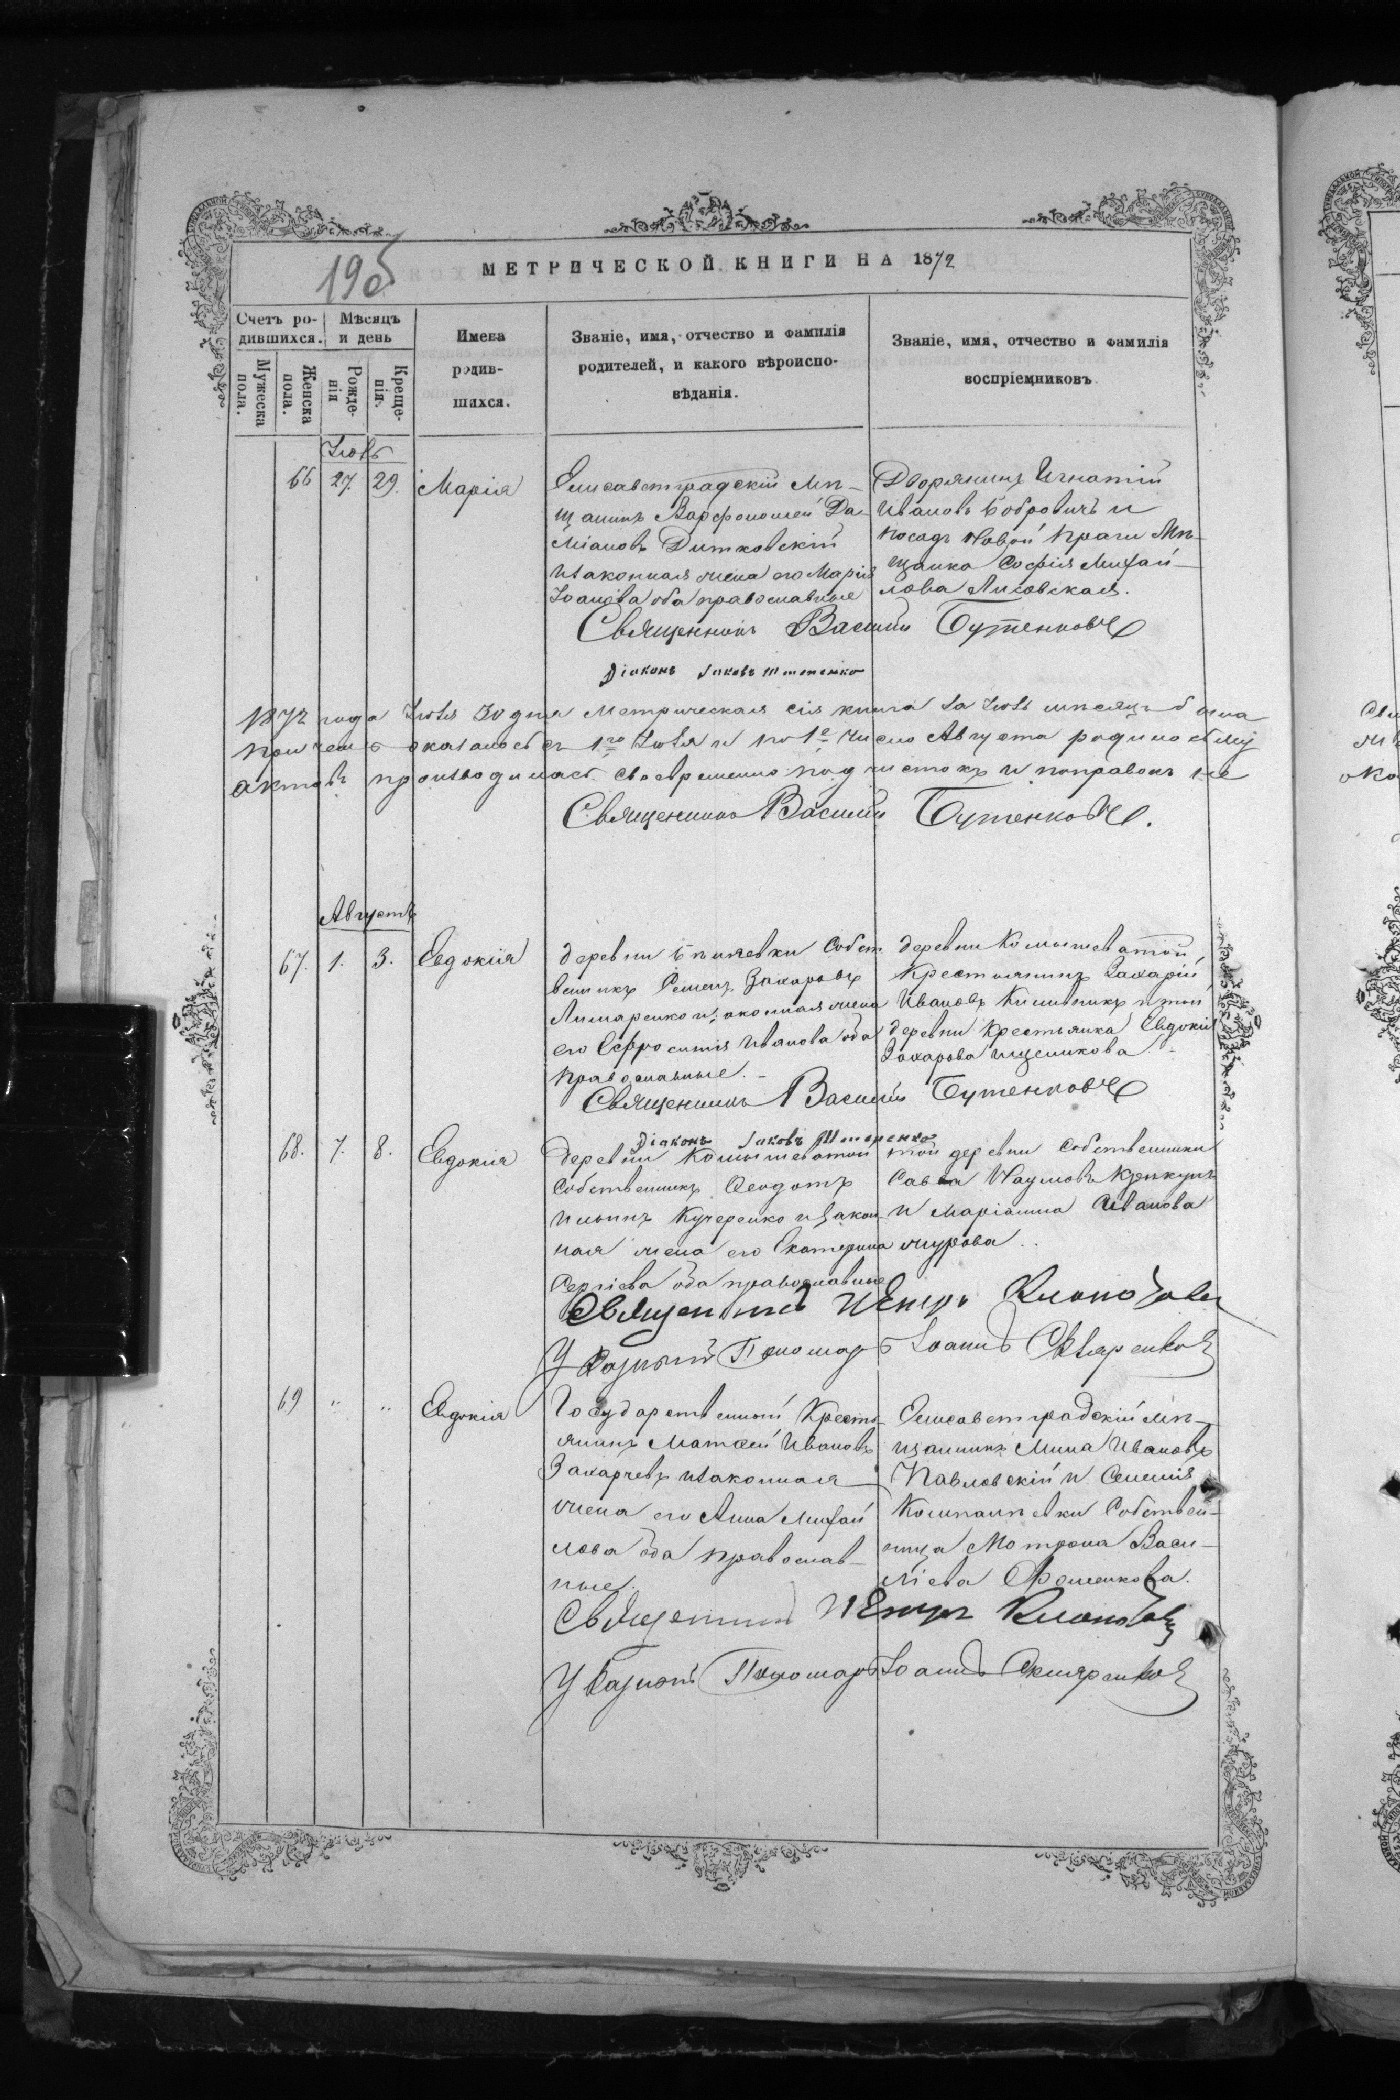 190б
МЕТРИЧЕСКОЙ КНИГИ НА 1872
Счетъ родившихся.
Мѣсяцъ и день
Мужеска пола.
Женска пола.
Рожденія
Крещенія.
Имена
родив-
шихся.
Званіе, имя, отчество и фамилія
родителей, и какого вѣроиспо-
вѣданія.
Званіе, имя, отчество и фамилія
воспріемниковъ
Іюль
66 27. 29. Марія
Елисаветградскій Мѣ-
щанинъ Варфоломей Да-
міановъ Дитковскій
и законная жена его Марія
Іоанова оба православные
Дворянинъ Игнатій
Ивановъ Бобровичъ и
посада Новой Праги Мѣ-
щанка Софія Михай-
лова Лисовская.
Священникъ Василій Бутенковъ
Діаконъ Іаковъ
1872 года Іюля 30 дня Метрическая сія книга за Іюль мѣсяцъ
при чемъ оказалось съ 1го Іюля и по 1е число Августа
актовъ производилась своевременно подчистокъ и поправокъ не
Священникъ Василій Бутенковъ.
Августъ
67. 1. 3. Евдокія
деревни собст
венникъ Захаровъ
и законная жена
его Ефросинія Иванова оба
православные.
деревни Комышеватой
Крестьянинъ Захарій
Ивановъ и той
деревни Крестьянка Евдокія
Захарова Ищенкова.
Священникъ Василій Бутенковъ
Діаконъ Іаковъ
68. 7. 8. Евдокія
Деревни Комышеватой
собственникъ Ѳеодотъ
Ильинъ Кучеренко и закон-
ная жена его Екатерина
Сергіева оба православные
той деревни собственники
Савва Наумовъ
и Маріанна Иванова
Священникъ
Указный Пономарь Іоаннъ Скляренковъ
69 " " Евдокія
Государственный Кресть-
янинъ Матѳей Ивановъ
Захарчевъ и законная
жена его Анна Михай
лова оба православ-
ные.
Елисаветградскій мѣ-
щанинъ Мина Ивановъ
Павловскій и Селенія
Компанѣевки Собствен-
ница Мотрона Васи-
ліева
Священникъ
Указный Пономарь Іоаннъ Скляренковъ